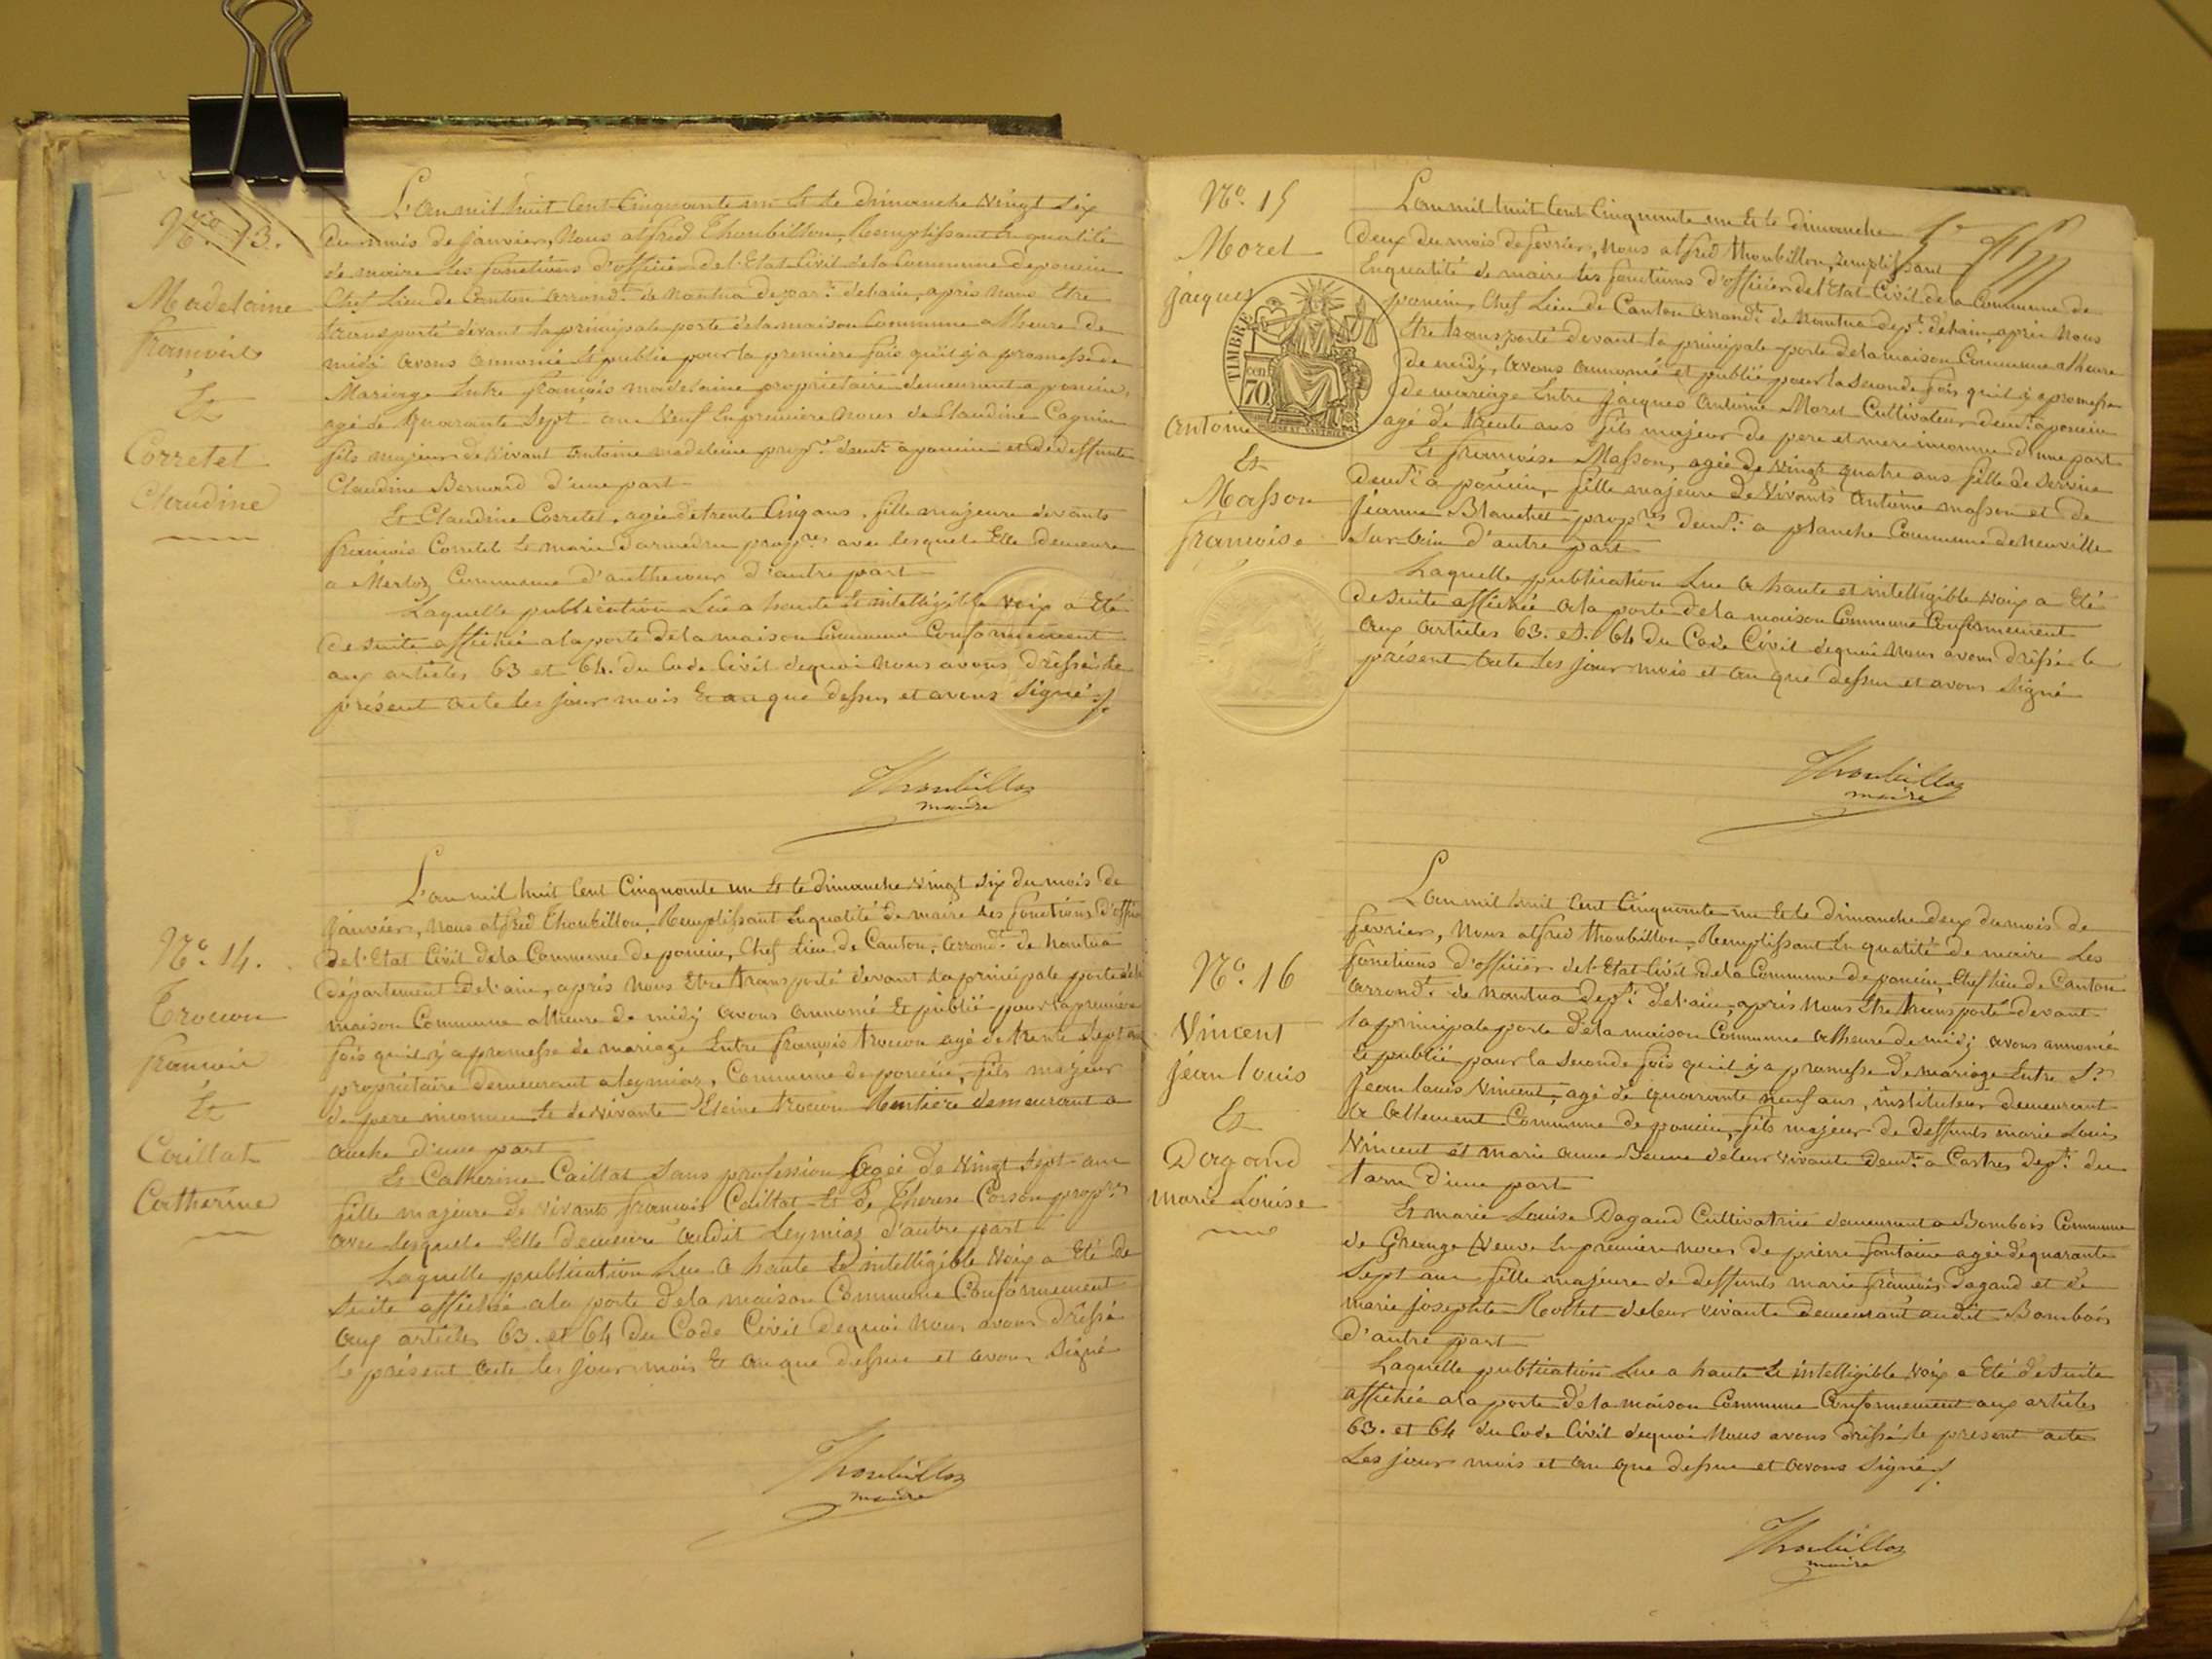 N.º 13.
Madelaine
françois
Et
Corretel
Claudine
L'an mil huit Cent Cinquante un Et le dimanche vingt Six
du mois de janvier, Nous alfred Thoubillon, Remplissant En qualité
de maire les fonctions d'officier de l'Etat Civil de la Commune de poncin
Chef Lieu de Canton arrond.t de Nantua depar.t delain, après Nous Etre
transporté devant la principale porte de la maison Commune a lheure de
midi avons annoncé Et publié pour la premiere fois qu'il y a promesse de
Mariage Entre françois madelaine propriétaire demeurant a poncin,
agé de quarante Sept ans Veuf En premiere Noces de Claudine Cagnin
fils majeur de vivant antoine madeleine prop.re deme.t a poncin et de deffunte
Claudine Bernard d'une part
Et Claudine Corretel, agée de trente Cinq ans, fille majeure
françois Corretel Et marie prop.res avec lesquels Elle demeure
a Merloz Commune d'autre part
Laquelle publication Lue a haute Et intelligible voix a Eté
de suite affichée a la porte de la maison Commune Conformément
aux articles 63 et 64. du Code Civil dequoi Nous avons dréssé le
présent acte les jour mois Et an que dessus et avons Signé
Thoubillon
maire
N.º 14.
Trocon
francois
Et
Caillat
Catherine
L'an mil huit Cent Cinquante un Et le dimanche vingt Six du mois de
janvier, Nous alfred Thoubillon, Remplissant En qualité de maire les fonctions d'offic
de l'Etat Civil de la Commune de poncin, Chef Lieu de Canton, arrond.t de Nantua
département de l'ain, après Nous Etre transporté devant la principale porte de la
maison Commune a lheure de midi avons annoncé Et publié pour la premiere
fois qu'il y a promesse de mariage Entre françois trocon agé de trente Sept ans
propriétaire demeurant a leymiaz, Commune de poncin, fils majeur
de pere inconnu Et de vivante trocon Rentiere demeurant a
d'une part
Et Catherine Caillat Sans profession agée de vingt Sept ans
fille majeure de vivants francois Caillat Et de Therese prop.res
avec lesquels Elle demeure audit Leymiaz d'autre part
Laquelle publication Lue a haute Et intelligible voix a Eté de
Suite affichée a la porte de la maison Commune Conformément
aux articles 63. et 64 du Code Civil dequoi Nous avons dréssé
le présent acte les jour mois Et an que dessus et avons Signé
Thoubillon
maire
N.º 15
Moret
jacques
antoine
Et
Masson
françoise
TIMBRE
70
cen
L'an mil huit Cent Cinquante un Et le dimanche
deux du mois de fevrier, Nous alfred thoubillon, remplissant
En qualité de maire les fonctions d'officier de l'Etat Civil de la Commune de
poncin, Chef Lieu de Canton arrond.t de Nantua dep.t delain, après Nous
Etre transporté devant la principale porte de la maison Commune a lheure
de midi, avons annoncé et publié pour la seconde fois qu'il y a promesse
de mariage Entre jacques antoine Moret Cultivateur dem.t a poncin
agé de trente ans fils majeur de pere et mere inconnu d'une part
Et françoise Masson, agée de vingt quatre ans fille de Service
dem.t a poncin, fille majeure de vivants antoine masson et de
jeanne Blanchet prop.res dem.t a planche Commune de Neuville
Sur lain d'autre part
Laquelle publication Lue a haute et intelligible voix a Eté
de suite affichée a la porte de la maison Commune Conformément
aux articles 63. et. 64 du Code Civil dequoi Nous avons dréssé le
présent acte les jour mois et an que dessus et avons Signé
Thoubillon
maire
N.º 16
Vincent
jean louis
Et
Dagand
Marie Louise
L'an mil huit Cent Cinquante un Et le dimanche deux du mois de
fevrier, Nous alfred thoubillon, Remplissant En qualité de maire Les
fonctions d'officier de l'Etat Civil de la Commune de poncin, Chef lieu de Canton
arrond.t de Nantua dep.t de l'ain, après Nous Etre transporté devant
la principale porte de la maison Commune a lheure de midi avons annoncé
Et publié pour la seconde fois qu'il y a promesse de mariage Entre S.r
jean louis Vincent, agé de quarante neuf ans, instituteur demeurant
a allement Commune de poncin, fils majeur de deffunts marie Louis
Vincent et Marie anne de leur vivants dem.t a Castres dep.t du
tarn d'une part
Et marie Louise Dagand Cultivatrice demeurant a Bombois Commune
de Veuve En premiere noces de pierre fontaine agée de quarante
Sept ans fille majeure de deffunts marie françois dagand et de
marie josephte de leur vivants demeurant audit Bombois
d'autre part
Laquelle publication Lue a haute Et intelligible voix a Eté de Suite
affichée a la porte de la maison Commune Conformément aux articles
63. et 64 du Code Civil dequoi Nous avons dréssé le present acte
Les jour mois et an que dessus et avons Signé
Thoubillon
maire